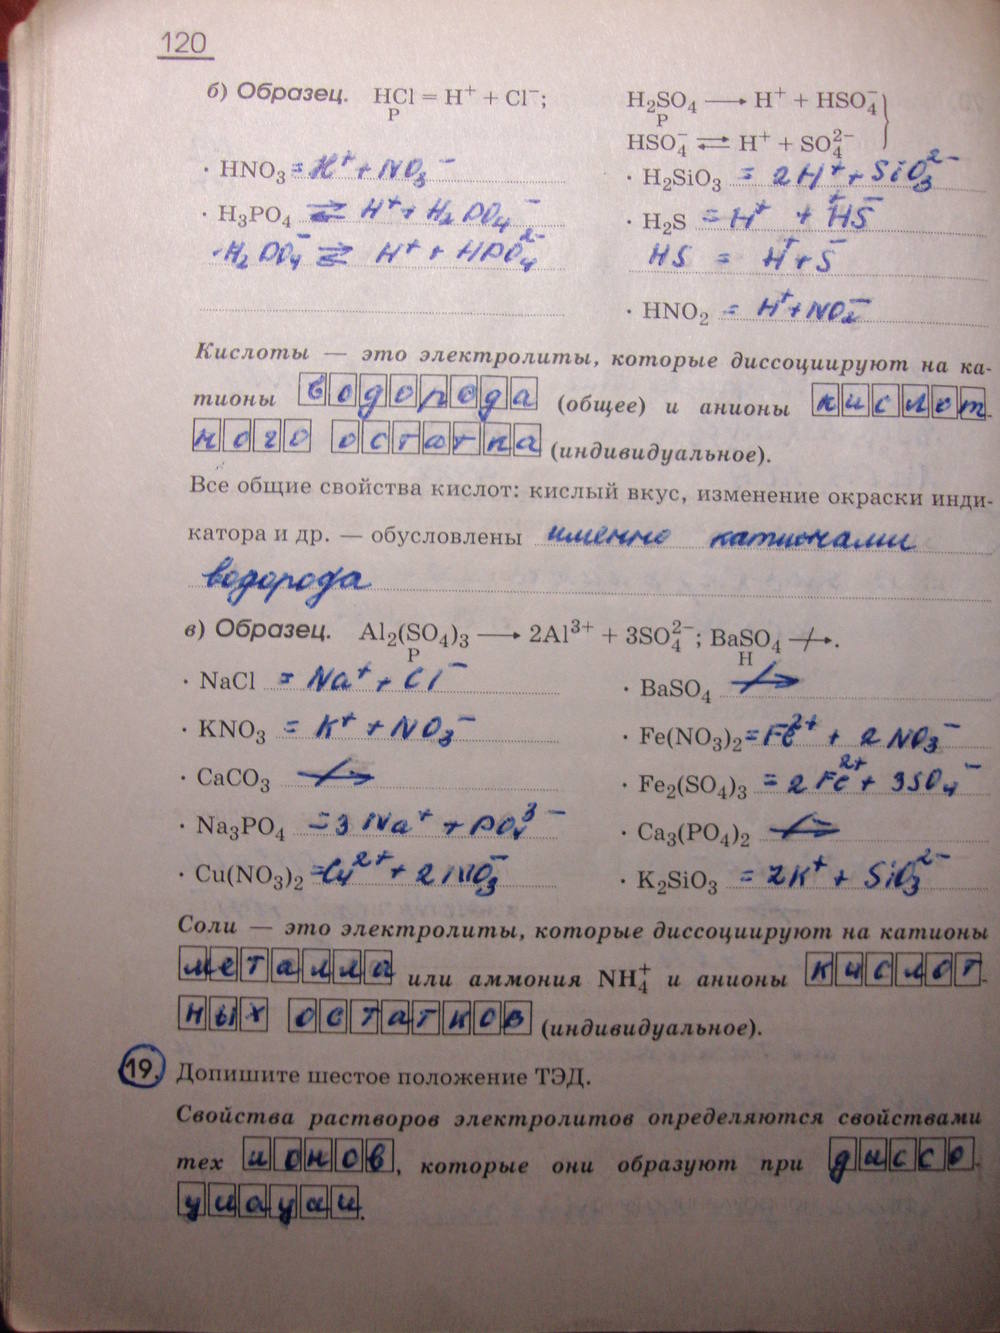 120
б) Образец. HCl = H⁺ + Cl⁻; H₂SO₄ ⟶ H⁺ + HSO₄⁻
Р Р
HSO₄⁻ ⇄ H⁺ + SO₄²⁻
· HNO₃ = H⁺ + NO₃⁻ · H₂SiO₃ = 2H⁺ + SiO₃²⁻
· H₃PO₄ ⇄ H⁺ + H₂PO₄⁻ · H₂S = H⁺ + HS⁻
· H₂PO₄⁻ ⇄ H⁺ + HPO₄²⁻ HS = H⁺ + S⁻
· HNO₂ = H⁺ + NO₂⁻
Кислоты — это электролиты, которые диссоциируют на ка-
тионы водорода (общее) и анионы кислот-
ного остатка (индивидуальное).
Все общие свойства кислот: кислый вкус, изменение окраски инди-
катора и др. — обусловлены именно катионами
водорода
в) Образец. Al₂(SO₄)₃ ⟶ 2Al³⁺ + 3SO₄²⁻; BaSO₄ ⇸.
Р Н
· NaCl = Na⁺ + Cl⁻ · BaSO₄ ⇸
· KNO₃ = K⁺ + NO₃⁻ · Fe(NO₃)₂ = Fe²⁺ + 2NO₃⁻
· CaCO₃ ⇸ · Fe₂(SO₄)₃ = 2Fe²⁺ + 3SO₄⁻
· Na₃PO₄ = 3Na⁺ + PO₄³⁻ · Ca₃(PO₄)₂ ⇸
· Cu(NO₃)₂ = Cu²⁺ + 2NO₃⁻ · K₂SiO₃ = 2K⁺ + SiO₃²⁻
Соли — это электролиты, которые диссоциируют на катионы
металла или аммония NH₄⁺ и анионы кислот-
ных остатков (индивидуальное).
19. Допишите шестое положение ТЭД.
Свойства растворов электролитов определяются свойствами
тех ионов, которые они образуют при диссо-
циации.